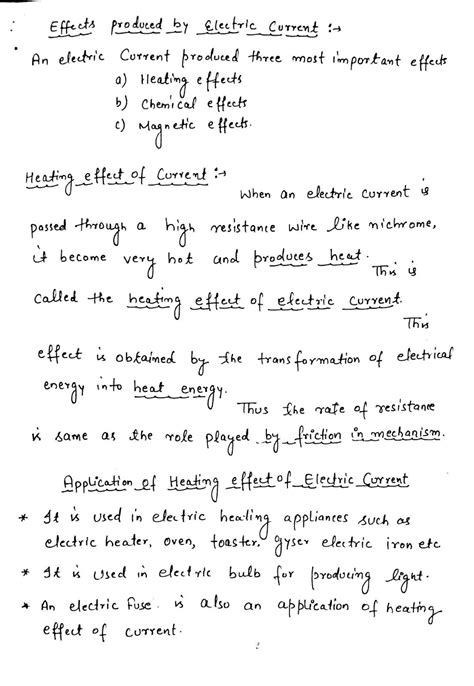 Effects produced by Electric Current :→
An electric Current produced three most important effects
a) Heating effects
b) Chemical effects
c) Magnetic effects.
Heating effect of Current :→
When an electric current is
passed through a high resistance wire like nichrome,
it become very hot and produces heat.
This is
called the heating effect of electric current.
This
effect is obtained by the transformation of electrical
energy into heat energy.
Thus the rate of resistance
is same as the role played by friction in mechanism.
Application of Heating effect of Electric Current
* It is used in electric heating appliances such as
electric heater, oven, toaster, gyser electric iron etc
* It is used in electric bulb for producing light.
* An electric fuse is also an application of heating
effect of current.